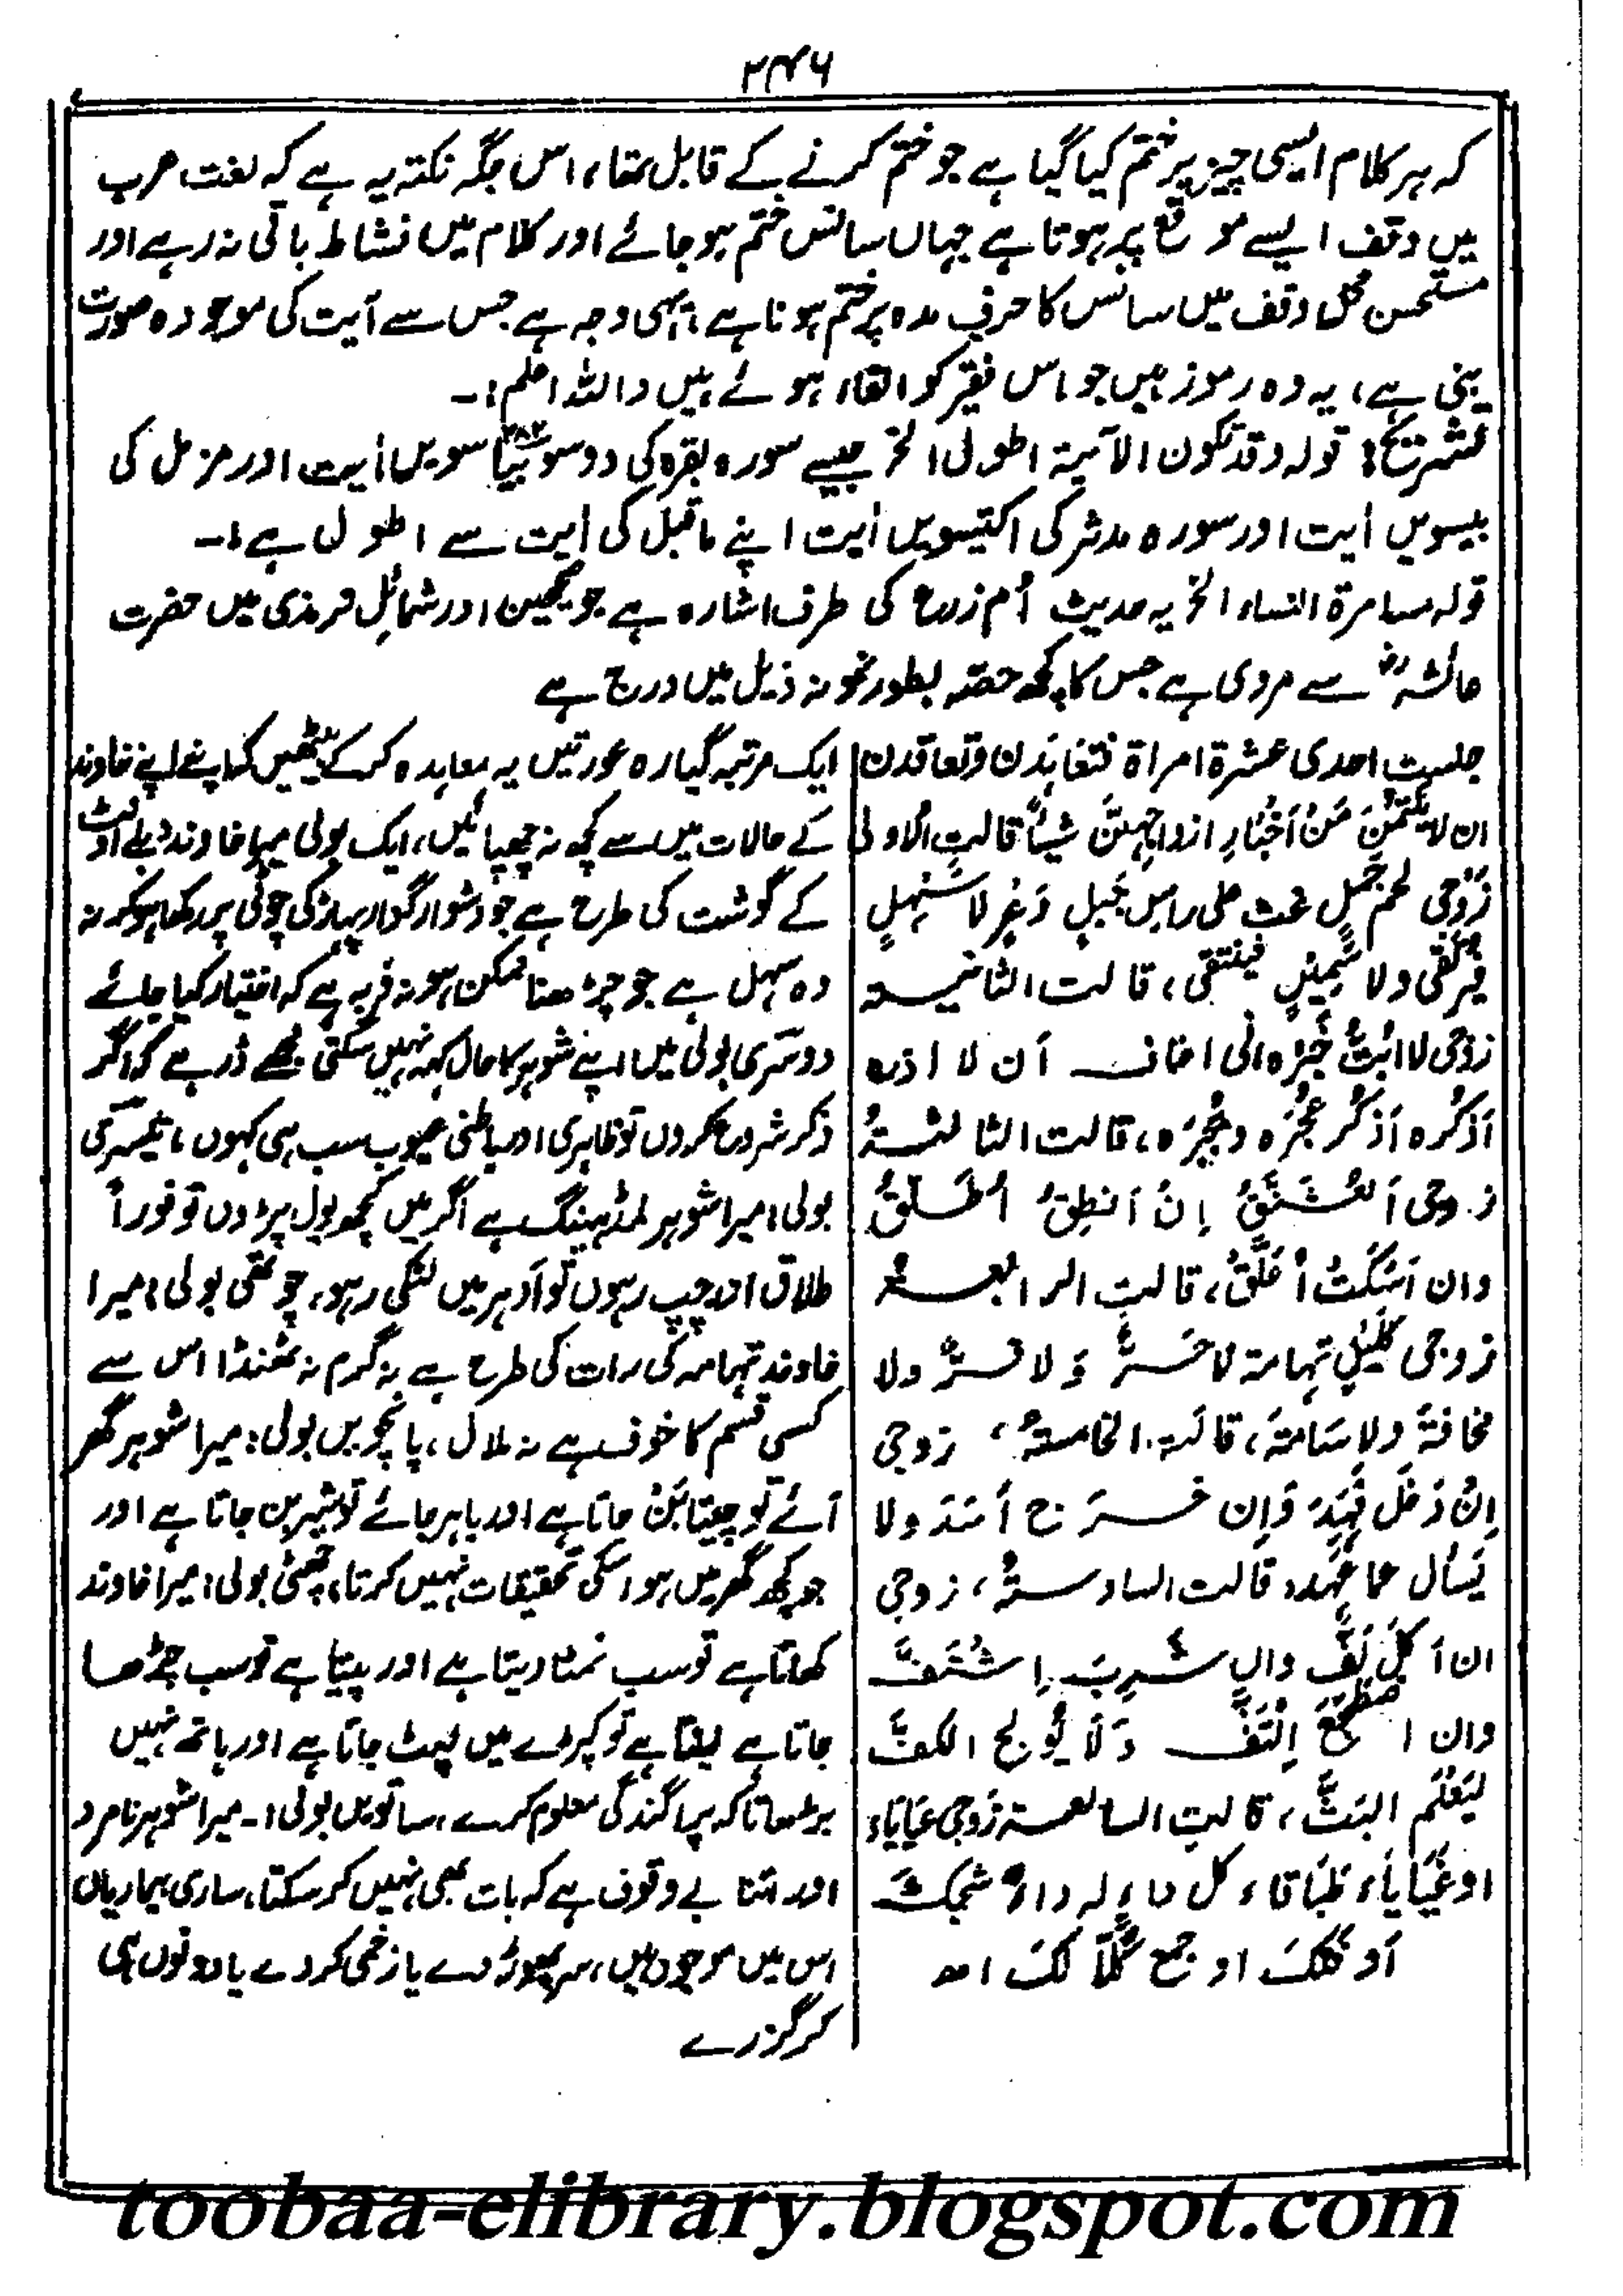 ۲۴۶
کہ ہر کلام ایسی چیز پر ختم کیا گیا ہے جو ختم کرنے کے قابل تھا، اس جگہ نکتہ یہ ہے کہ لغت عرب
میں وقف ایسے موقع پر ہوتا ہے جہاں سانس ختم ہو جائے اور کلام میں نشاط باقی نہ رہے اور
مستحسن محل وقف میں سانس کا حرف مدہ پر ختم ہونا ہے، یہی وجہ ہے جس سے آیت کی موجودہ صورت
بنی ہے، یہ وہ رموز ہیں جو اس فقیر کو القاء ہوئے ہیں واللہ اعلم:۔
تشریح: قولہ وقد تکون الآیۃ اطول الخ جیسے سورہ بقرہ کی دو سو بیاسویں ۲۸۲ اٰیت اور مزمل کی
بیسویں اٰیت اور سورہ مدثر کی اکتیسویں اٰیت اپنے ماقبل کی اٰیت سے اطول ہے:۔
قولہ مسامرۃ النساء الخ یہ حدیث اُم زرع کی طرف اشارہ ہے جو صحیحین اور شمائل ترمذی میں حضرت
عائشہ رضؓ سے مروی ہے جس کا کچھ حصّہ بطور نمونہ ذیل میں درج ہے
جلست احدی عشرۃ امراۃ فتعاہَدن وتعاقدن
ان لا یکتُمْنَ مَنْ اَخْبَارِ ازواجِہِنَّ شیئاً قالتِ الاُولی
زَوْجی لحم جَمَلٍ غث علی راسِ جَبَلٍ وَعْرٍ لا سَہْلٍ
فیُرتَقٰی ولا سَمِیْنٍ فینتقی، قالت الثانیۃ
زوجی لا ابُثُّ خَبَرَہ انی اخاف اَن لا اذرہ
اَذکُرہ اَذکُر عُجَرَہ وبُجَرَہ، قالت الثالثۃُ
زوجی اَلعَشَنَّقُ اِنْ اَنطِقْ اُطَلَّقُ
وان اَسْکُتْ اُعَلَّقُ، قالتِ الرابعۃُ
زوجی کَلَیْلِ تِہامۃ لا حَرٌّ وَلا قرٌّ ولا
مخافۃَ ولا سَامۃَ، قالَت الخامسۃُ، زوجی
اِنْ دَخَلَ فَہِدَ وَاِن خرَجَ اَسَدَ ولا
یَسْاَل عما عَہِدَ، قالت السادسۃُ، زوجی
ان اَکَلَ لَفَّ وان شَرِبَ اِشْتَفَّ
وان اضْطَجَعَ اِلْتَفَّ وَلَا یُولج الکفَّ
لیَعْلَم البَثَّ، قالتِ السابعۃ زَوْجی عَیَایَاءُ
او غَیَایَاءُ طَبَاقَاءُ کل داءٍ لہ داءٌ شجک
اَو فَلَّکَ او جمع کُلّاً لَکَ اھ
ایک مرتبہ گیارہ عورتیں یہ معاہدہ کرکے بیٹھیں کہ اپنے اپنے خاوند
کے حالات میں سے کچھ نہ چھپائیں، ایک بولی میرا خاوند دبلے اونٹ
کے گوشت کی طرح ہے جو دشوار گذار پہاڑ کی چوٹی پر رکھا ہو کہ نہ
وہ سہل ہے جو چڑھنا ممکن ہو نہ فربہ ہے کہ اختیار کیا جائے
دوسری بولی میں اپنے شوہر کا حال کہہ نہیں سکتی مجھے ڈر ہے کہ اگر
ذکر شروع کروں تو ظاہری اور باطنی عیوب سب ہی کہوں، تیسری
بولی: میرا شوہر لمڈھینگ ہے اگر میں کچھ بول پڑوں تو فوراً
طلاق اور چپ رہوں تو اَدہر میں لٹکی رہو، چوتھی بولی: میرا
خاوند تہامہ کی رات کی طرح ہے نہ گرم نہ ٹھنڈا اس سے
کسی قسم کا خوف ہے نہ ملال، پانچویں بولی: میرا شوہر گھر
آئے تو چیتا بَنْ جاتا ہے اور باہر جائے تو شیر بن جاتا ہے اور
جو کچھ گھر میں ہو اسکی تحقیقات نہیں کرتا، چھٹی بولی: میرا خاوند
کھاتا ہے تو سب نمٹا دیتا ہے اور پیتا ہے تو سب چڑھا
جاتا ہے لیٹتا ہے تو کپڑے میں لپٹ جاتا ہے اور ہاتھ نہیں
بڑھاتا کہ پراگندگی معلوم کرے، ساتویں بولی:۔ میرا شوہر نامرد
اور اتنا بے وقوف ہے کہ بات بھی نہیں کر سکتا، ساری بیماریاں
اس میں موجود ہیں، سر پھوڑ دے یا زخمی کر دے یا دونوں ہی
کر گزرے
toobaa-elibrary.blogspot.com